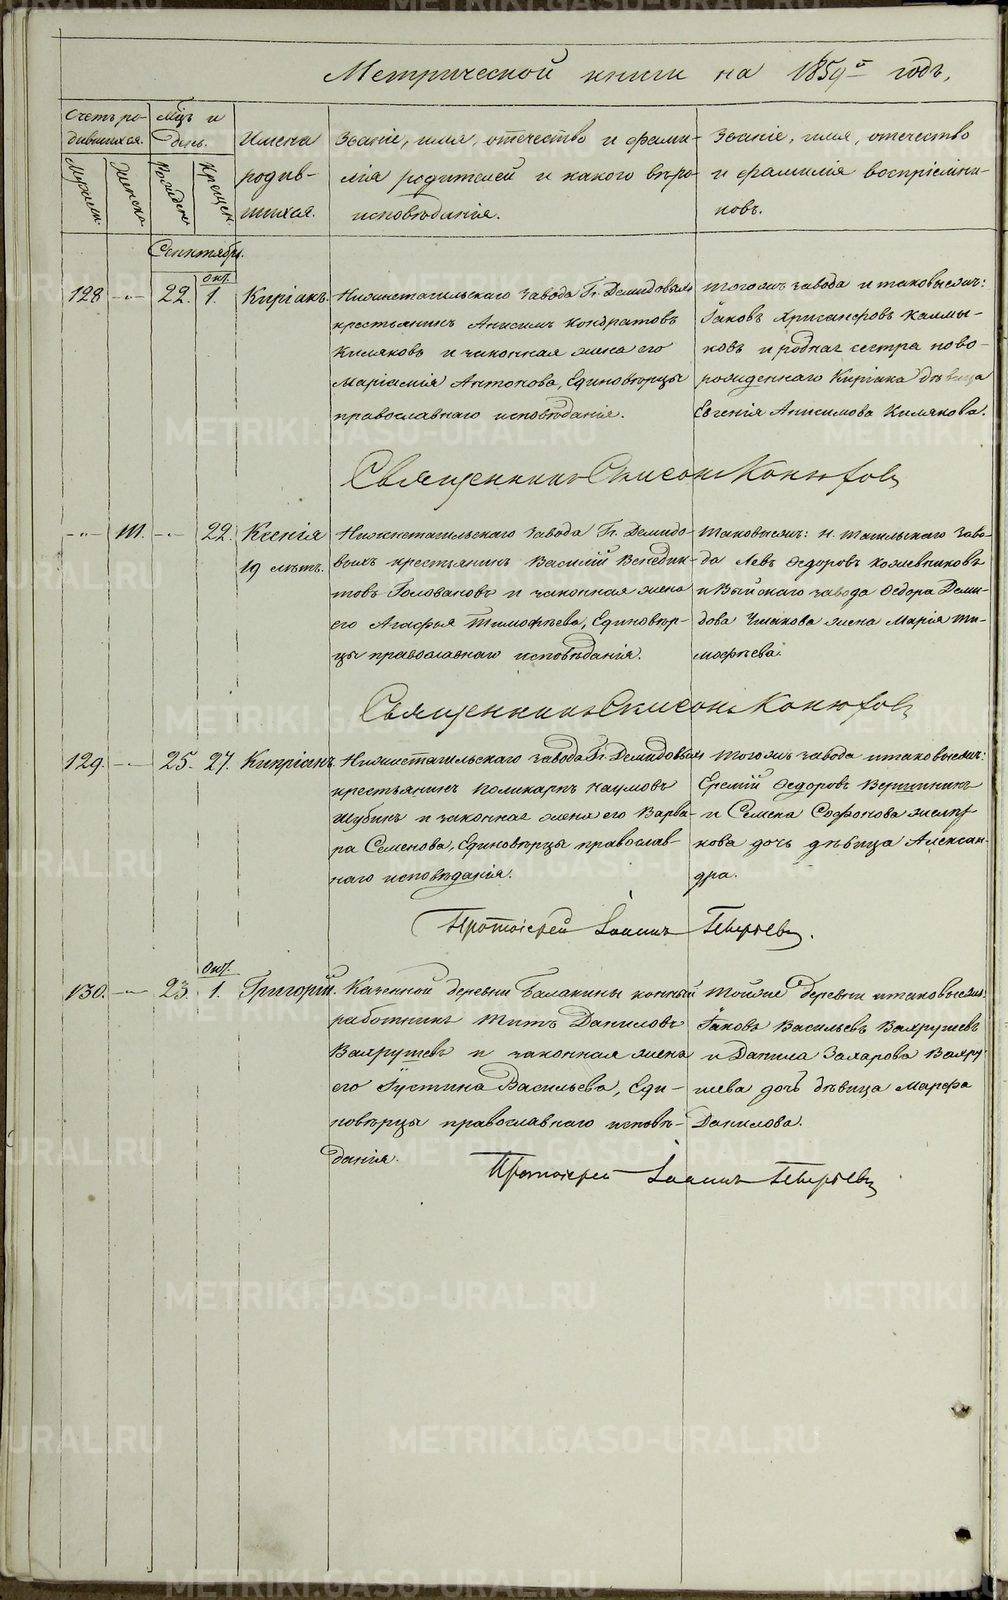 Метрической книги на 1859й годъ.
Счетъ ро-
дившихся.
Мцъ и
день.
Имена
родив-
шихся.
Званіе, имя, отечество и фами-
лія родителей и какого вѣро-
исповѣданія.
Званіе, имя, отечество
и фамилія воспріемни-
ковъ.
Мужеск.
Женска.
Рожден.
Крещен.
Сентябрь.
Окт.
128 -"- 22. 1. Киріакъ.
Нижнетагильскаго завода Гг. Демидовыхъ
крестьянинъ Анисимъ Кондратовъ
Киляковъ и законная жена его
Маріамія Антонова, Единовѣрцы
православнаго исповѣданія.
Тогожъ завода и таковыежъ:
Іаковъ Хрисанфовъ Калмы-
ковъ и родная сестра ново-
рожденнаго Киріака дѣвица
Евгенія Анисимова Килякова.
Священникъ Симеонъ Конюховъ
-"- 111. -"- 22. Ксенія
19 лѣтъ.
Нижнетагильскаго завода Гг. Демидо-
выхъ крестьянинъ Василій Венедик-
товъ Головановъ и законная жена
его Агафья Тимофѣева, Единовѣр-
цы православнаго исповѣданія.
Таковыежъ: Н. Тагильскаго заво-
да Левъ Ѳедоровъ Кожевниковъ
и Выйскаго завода Ѳедора Деми-
дова жена Марія Ти-
мофѣева.
Священникъ Симеонъ Конюховъ
129. -"- 25. 27. Кипріанъ.
Нижнетагильскаго завода Гг. Демидовыхъ
крестьянинъ Поликарпъ Наумовъ
Шубинъ и законная жена его Варва-
ра Семенова, Единовѣрцы православ-
наго исповѣданія.
Тогожъ завода и таковыежъ:
Еремій Ѳедоровъ Вершининъ
и Семена Софонова
кова дочь дѣвица Алексан-
дра.
Протоіерей Іоаннъ
Окт.
130. -"- 23. 1. Григорій.
Казенной деревни Балакины конный
работникъ Титъ Даниловъ
Вахрушевъ и законная жена
его Іустина Васильева, Еди-
новѣрцы православнаго исповѣ-
данія.
Тойже деревни и таковыежъ:
Іаковъ Васильевъ Вахрушевъ
и Данила Захарова Вахру-
шева дочь дѣвица Марфа
Данилова.
Протоіерей Іоаннъ
METRIKI.GASO-URAL.RU